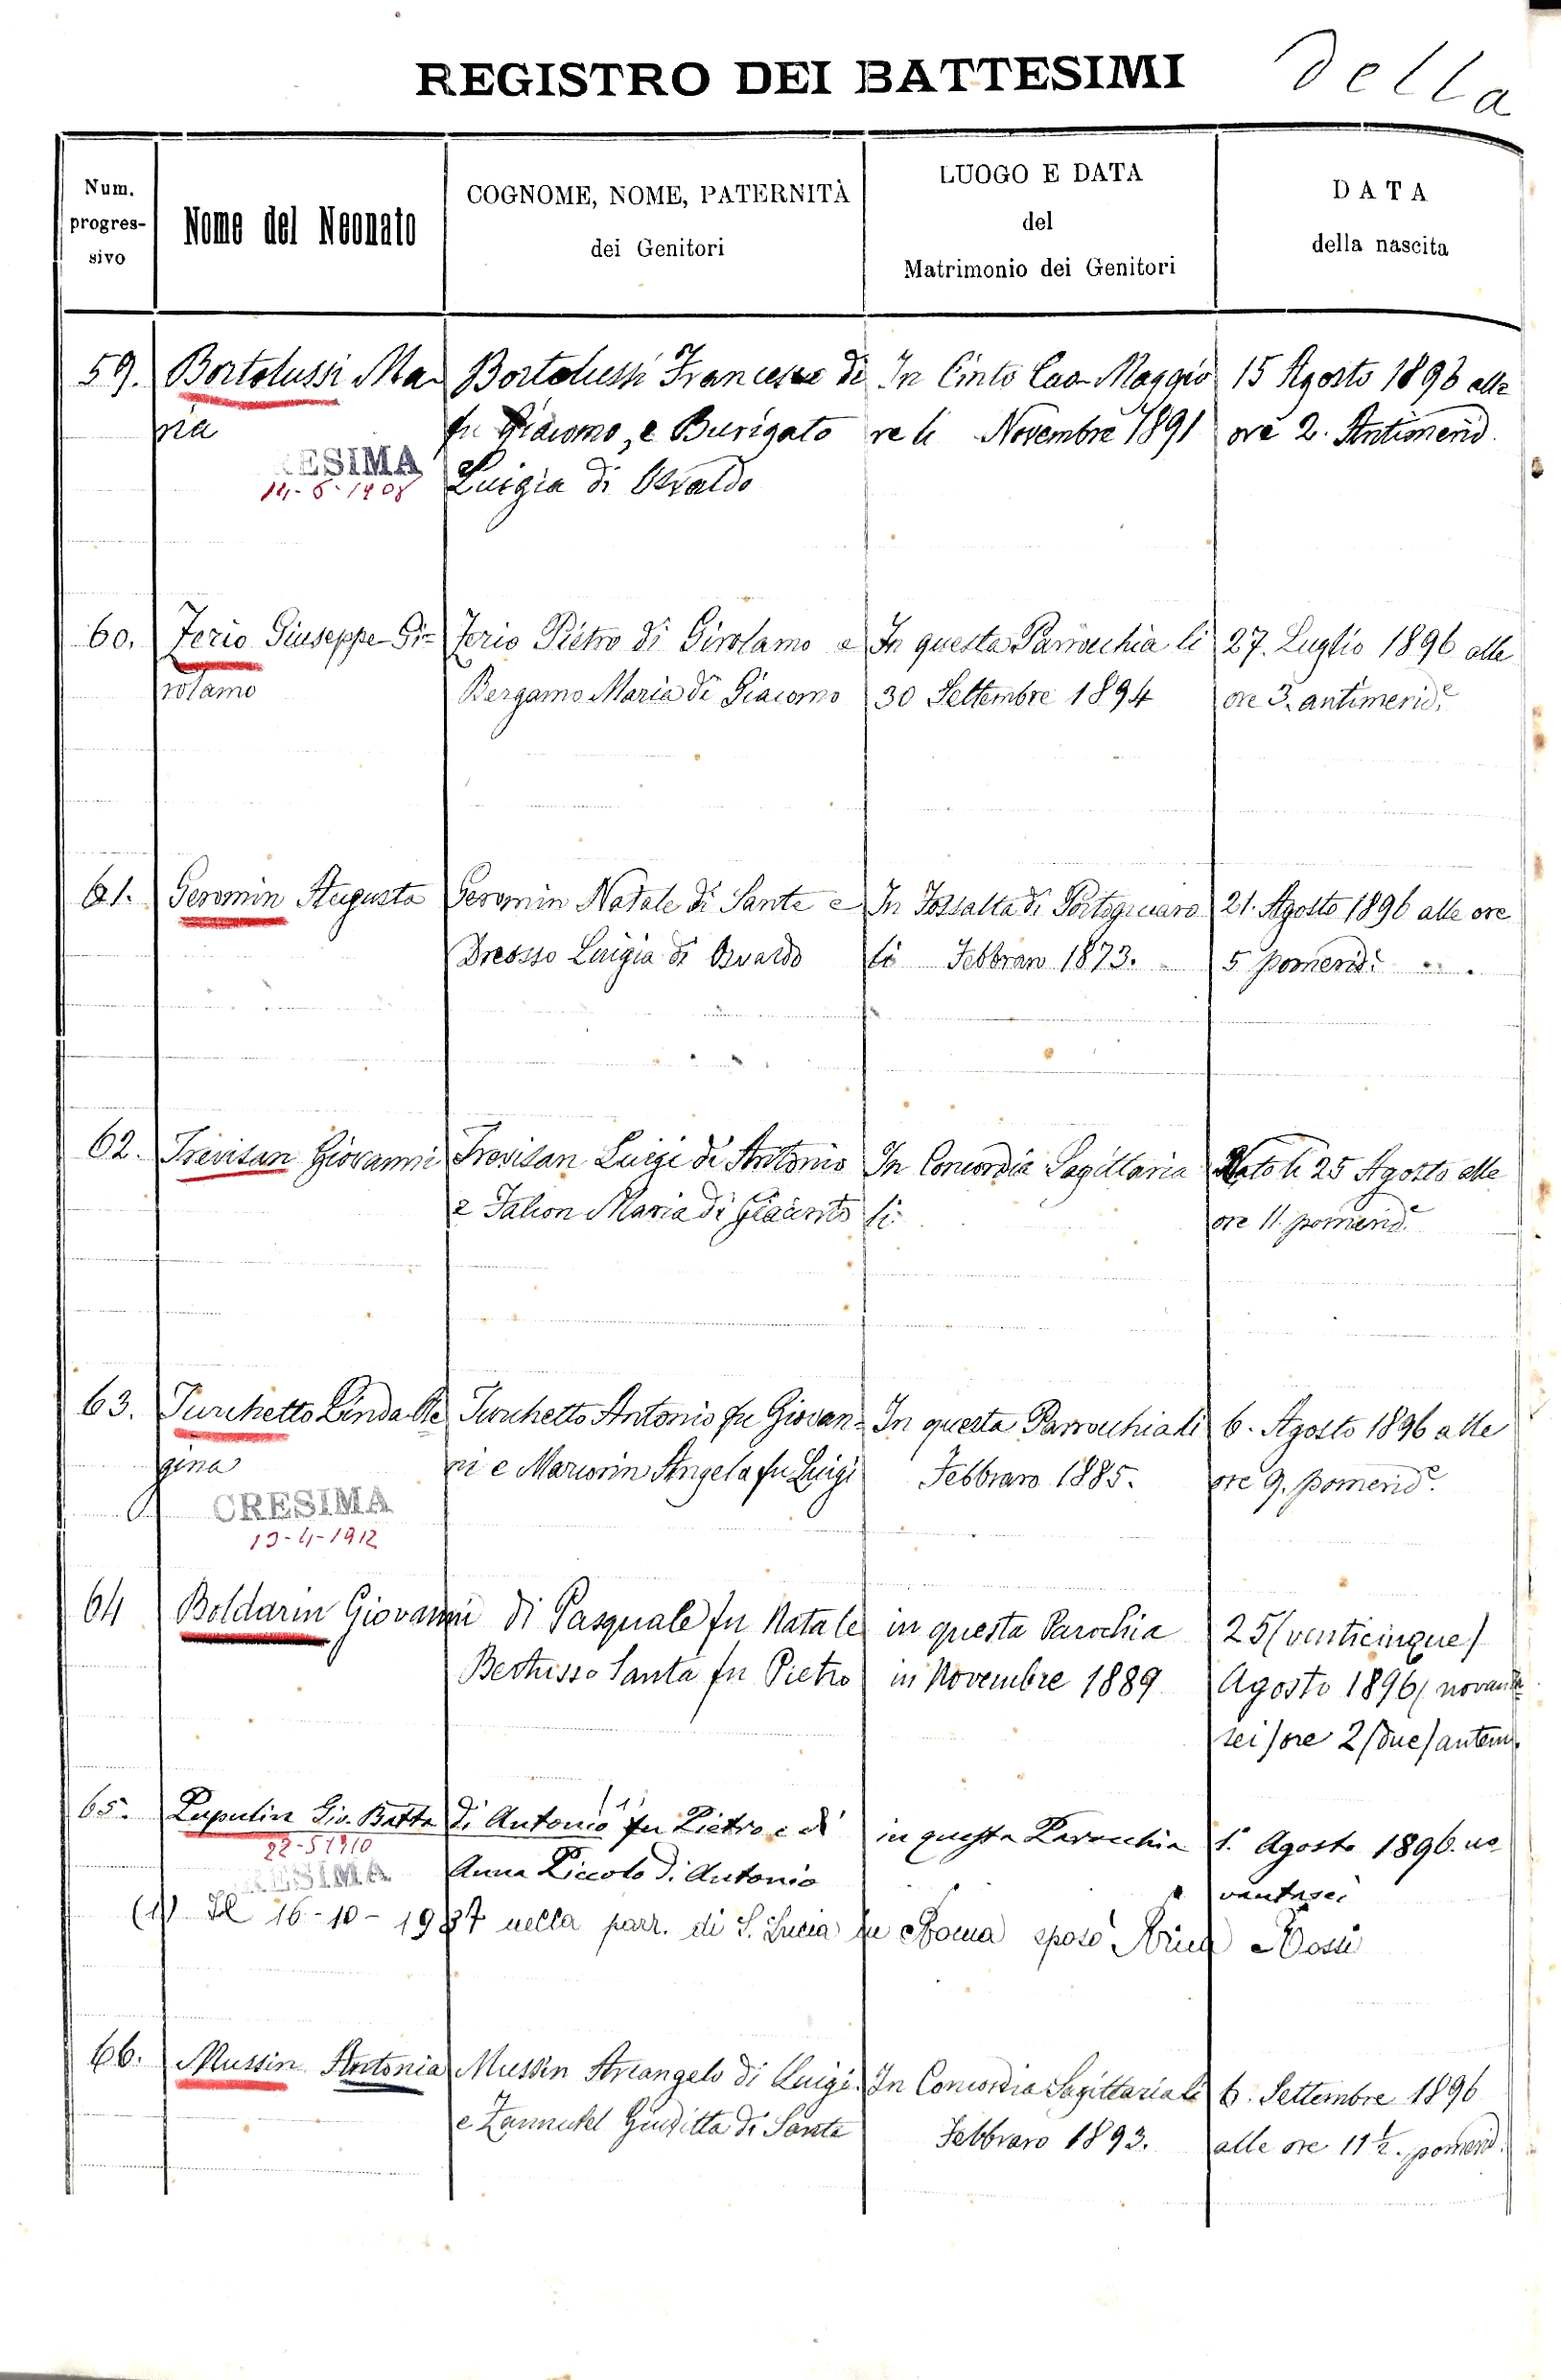 REGISTRO DEI BATTESIMI della
Num. progres- sivo
Nome del Neonato
COGNOME, NOME, PATERNITÀ
dei Genitori
LUOGO E DATA
del
Matrimonio dei Genitori
DATA
della nascita
59. Bortolussi Ma- Bortolussi Francesco di In Cinto Cao-Maggio 15 Agosto 1896 alle
ria fu Giacomo, e Burigato re li Novembre 1891 ore 2. Antimerid.
ESIMA Luigia di Osvaldo
14-6-1908
60. Ferio Giuseppe Gi= Ferio Pietro di Girolamo e In questa Parrocchia li 27. Luglio 1896 alle
rolamo Bergamo Maria di Giacomo 30 Settembre 1894 ore 3. antimerid.e
61. Geromin Augusta Geromin Natale di Sante e In Fossalta di Portogruaro 21. Agosto 1896 alle ore
Dreosso Luigia di Osvaldo li Febbraro 1873. 5 pomerid.
62. Trevisan Giovanni Trevisan Luigi di Antonio In Concordia Sagittaria Nato li 25 Agosto alle
e Falion Maria di Giacinto li ore 11. pomerid.e
63. Turchetto Linda Re Turchetto Antonio fu Giovan= In questa Parrocchia li 6. Agosto 1896 alle
gina ni e Marcorin Angela fu Luigi Febbraro 1885. ore 9. pomerid.e
CRESIMA
13-4-1912
64 Boldarin Giovanni di Pasquale fu Natale in questa Parochia 25 (venticinque)
Bertusso Santa fu Pietro in Novembre 1889 Agosto 1896 (novanta
sei) ore 2 (due) antem.
65. Pupulin Gio. Batta di Antonio (1) fu Pietro e di in questa Parocchia 1.° Agosto 1896. no
22-5 1910 Anna Piccolo di Antonio vantasei
RESIMA
(1) Il 16-10-1937 nella parr. di S. Lucia in Roma sposò Rossi
66. Mussin Antonia Mussin Arcangelo di Luigi In Concordia Sagittaria li 6. Settembre 1896
e Giuditta di Sante Febbraro 1893. alle ore 11 ½. pomerid.